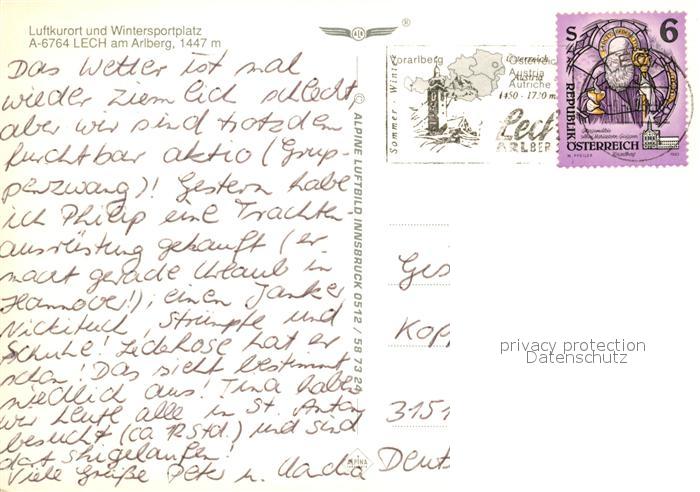 Luftkurort und Wintersportplatz
A-6764 LECH am Arlberg, 1447 m
Das Wetter ist mal
wieder ziemlich schlecht,
aber wir sind trotzdem
furchtbar aktiv (Grup-
penzwang)! Gestern habe
ich Philip eine Trachten-
ausrüstung gekauft (er
macht gerade Urlaub in
Hannover!), einen Janker,
Nickituch, Strümpfe und
Schuhe! Lederhose hat er
schon! Das sieht bestimmt
niedlich aus! Tina haben
wir heute alle in St. Anton
besucht (ca. 12 Std.) und sind
dort skigelaufen!
Viele Grüße Peter u. Claudia
© ALPINE LUFTBILD INNSBRUCK 0512 / 58 73 24
ALPINA
Sommer - Winter
Vorarlberg
Österreich
Austria
Autriche
1450 - 1720 m
Lech
ARLBERG
S 6
REPUBLIK
ÖSTERREICH
1993
Ges
Kop
3151
Deut
privacy protection
Datenschutz